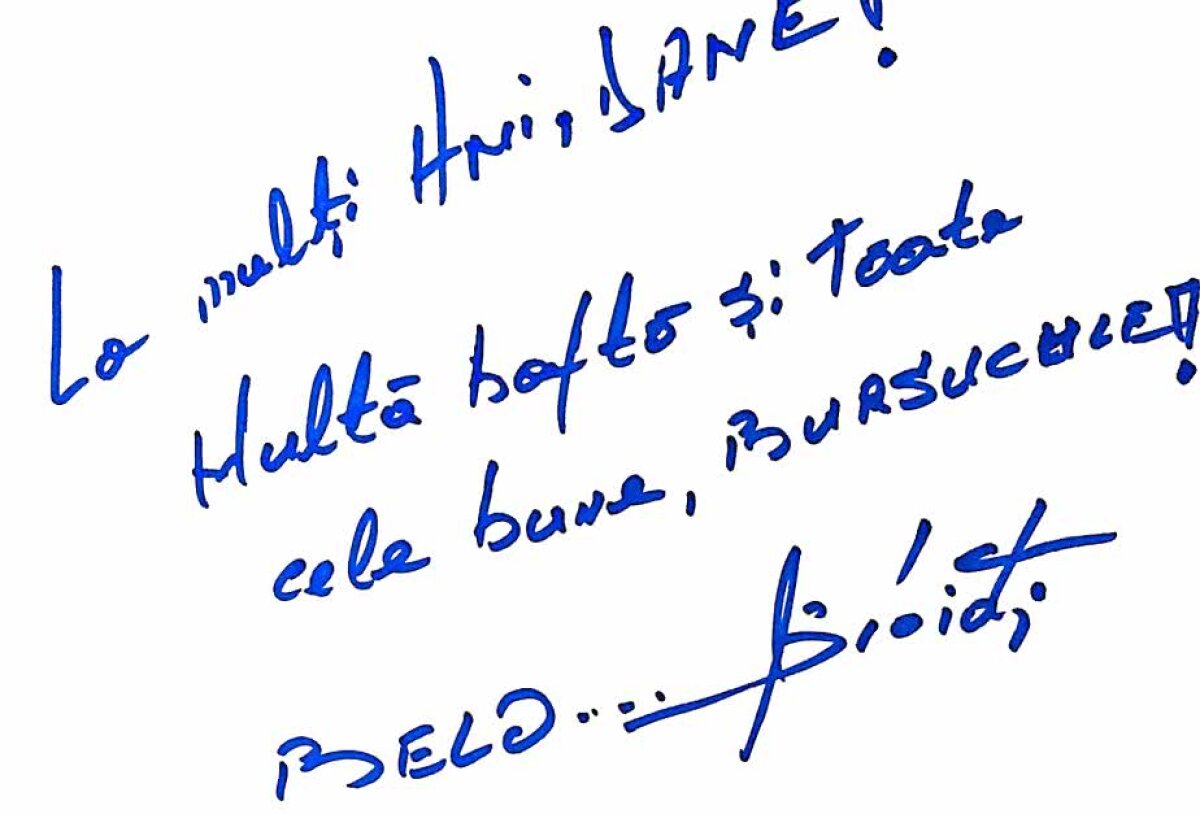 La mulți Ani, DANE!
Multă baftă și Toate
cele bune, BURSUCELE!
BELO...